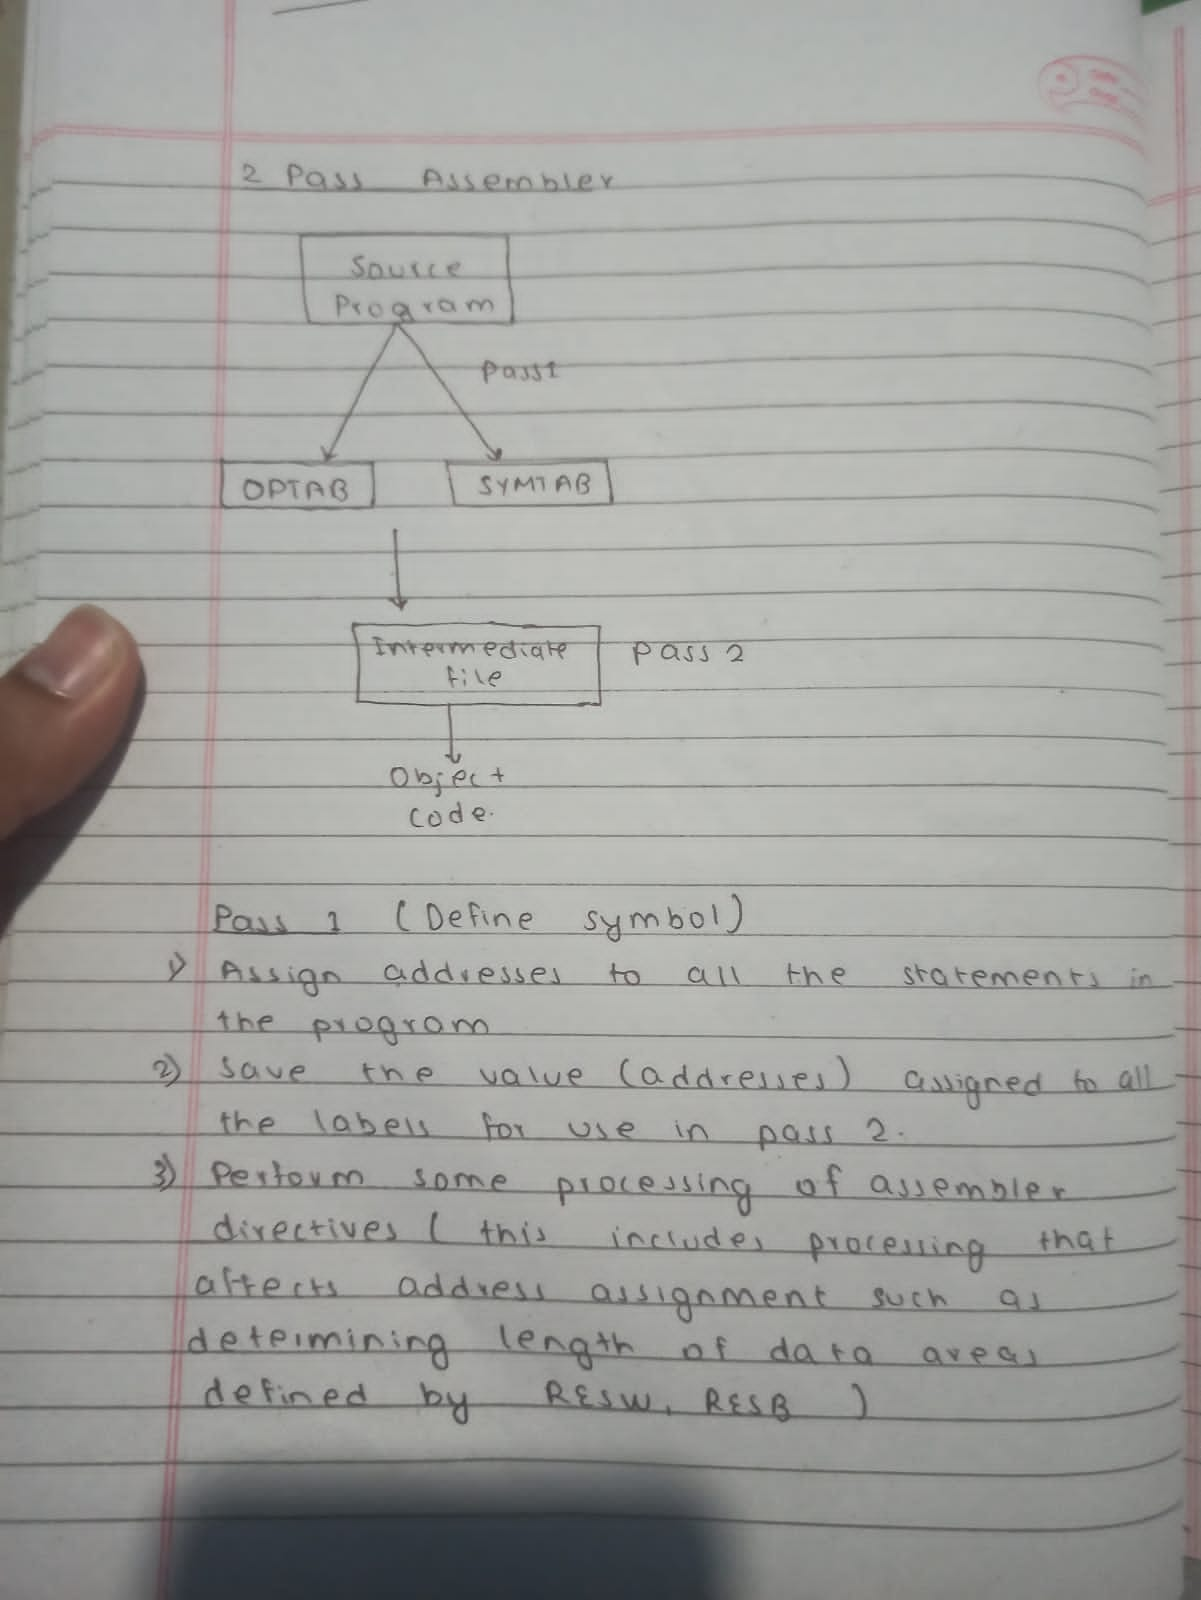 2 Pass Assembler
Source
Program
Pass 1
OPTAB
SYMTAB
Intermediate
file
Pass 2
Object
code.
Pass 1 (Define symbol)
1) Assign addresses to all the statements in
the program
2) Save the value (addresses) assigned to all
the labels for use in pass 2.
3) Perform some processing of assembler
directives ( this includes processing that
affects address assignment such as
determining length of data areas
defined by RESW, RESB )